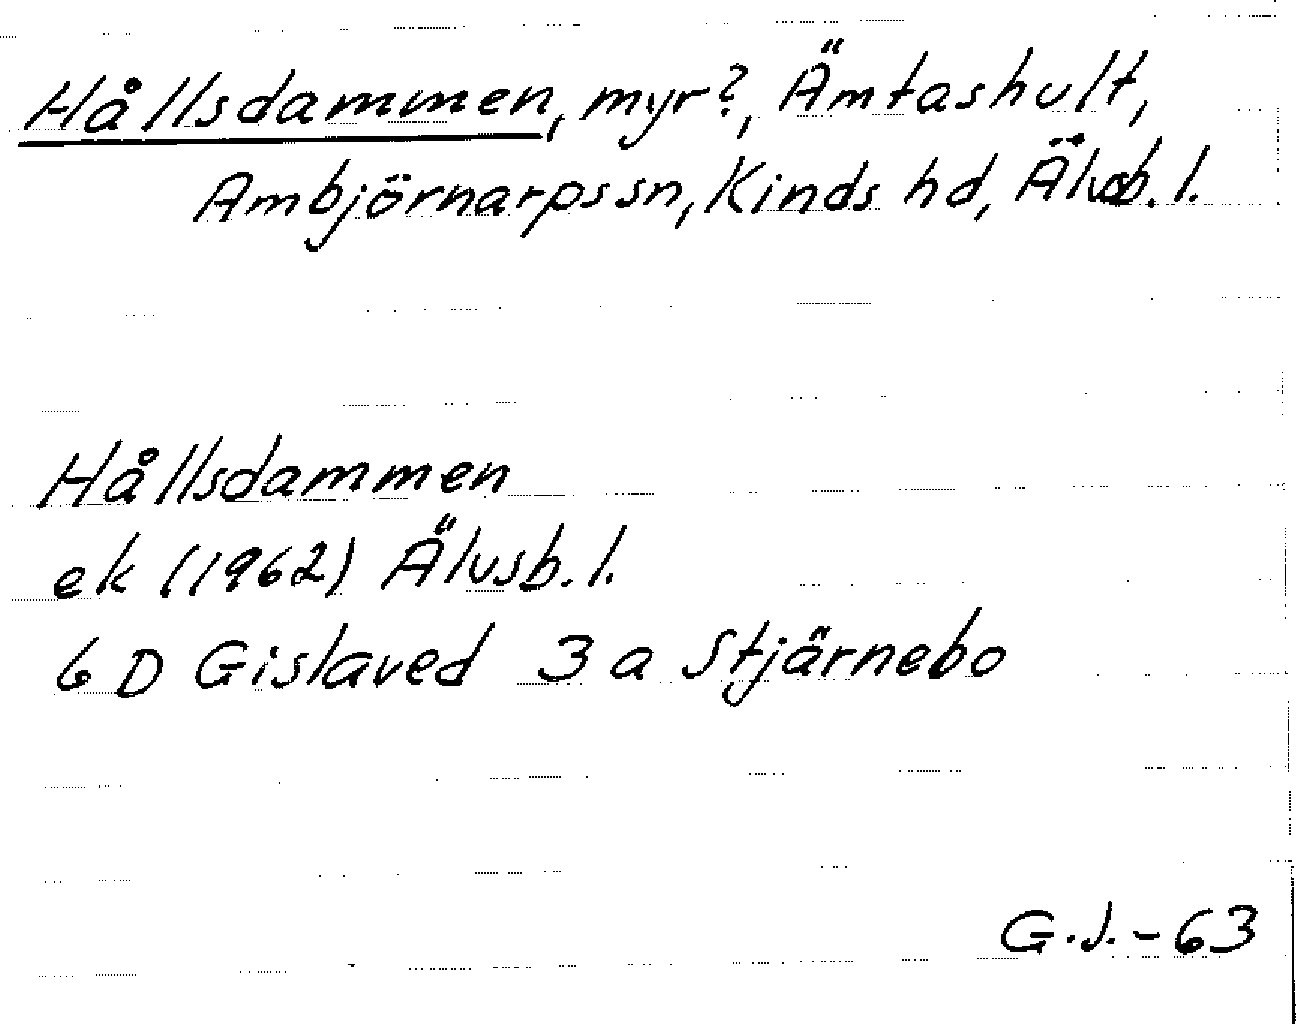 Hållsdammen, myr?, Ämtashult,
Ambjörnarps sn, Kinds hd, Älvsb. l.
Hållsdammen
ek (1962) Älvsb. l.
6 D Gislaved 3 a Stjärnebo
G.J. - 63